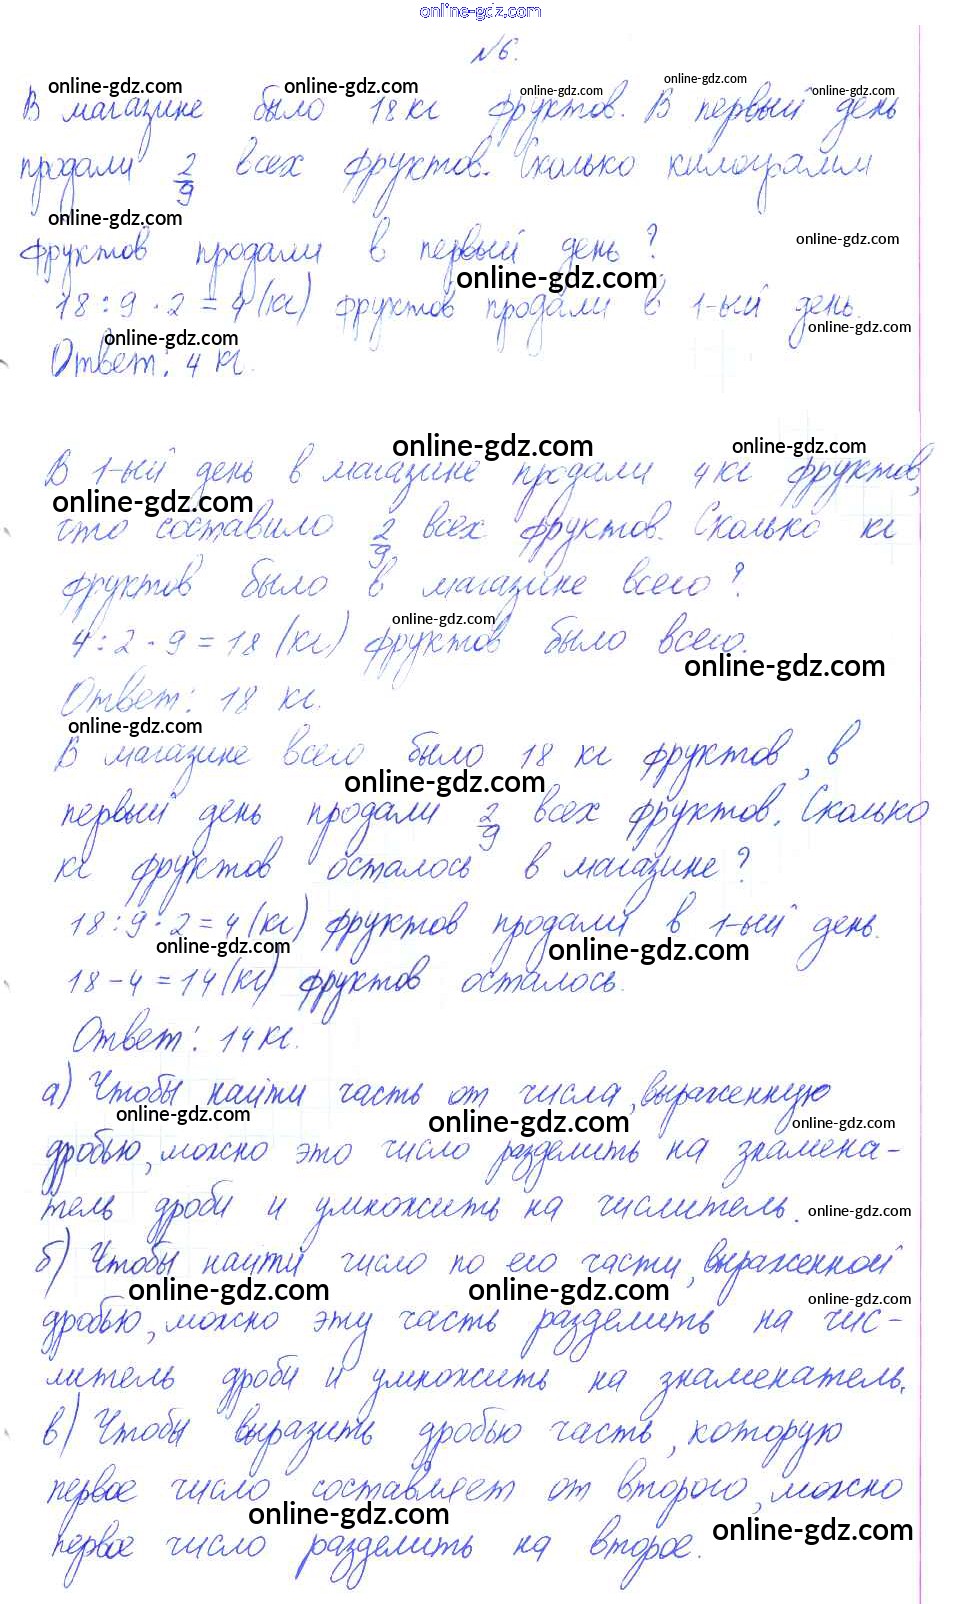 online-gdz.com
№6.
online-gdz.com online-gdz.com online-gdz.com online-gdz.com online-gdz.com
В магазине было 18 кг фруктов. В первый день
продали 2/9 всех фруктов. Сколько килограмм
online-gdz.com
фруктов продали в первый день?
online-gdz.com
online-gdz.com
18 : 9 · 2 = 4 (кг) фруктов продали в 1-ый день.
online-gdz.com online-gdz.com
Ответ: 4 кг.
online-gdz.com online-gdz.com
В 1-ый день в магазине продали 4 кг фруктов,
online-gdz.com
что составило 2/9 всех фруктов. Сколько кг
фруктов было в магазине всего?
online-gdz.com
4 : 2 · 9 = 18 (кг) фруктов было всего.
online-gdz.com
Ответ: 18 кг.
online-gdz.com
В магазине всего было 18 кг фруктов, в
online-gdz.com
первый день продали 2/9 всех фруктов. Сколько
кг фруктов осталось в магазине?
18 : 9 · 2 = 4 (кг) фруктов продали в 1-ый день.
online-gdz.com online-gdz.com
18 - 4 = 14 (кг) фруктов осталось.
Ответ: 14 кг.
а) Чтобы найти часть от числа, выраженную
online-gdz.com online-gdz.com online-gdz.com
дробью, можно это число разделить на знамена-
тель дроби и умножить на числитель.
online-gdz.com
б) Чтобы найти число по его части, выраженной
online-gdz.com online-gdz.com online-gdz.com
дробью, можно эту часть разделить на чис-
литель дроби и умножить на знаменатель.
в) Чтобы выразить дробью часть, которую
первое число составляет от второго, можно
online-gdz.com online-gdz.com
первое число разделить на второе.